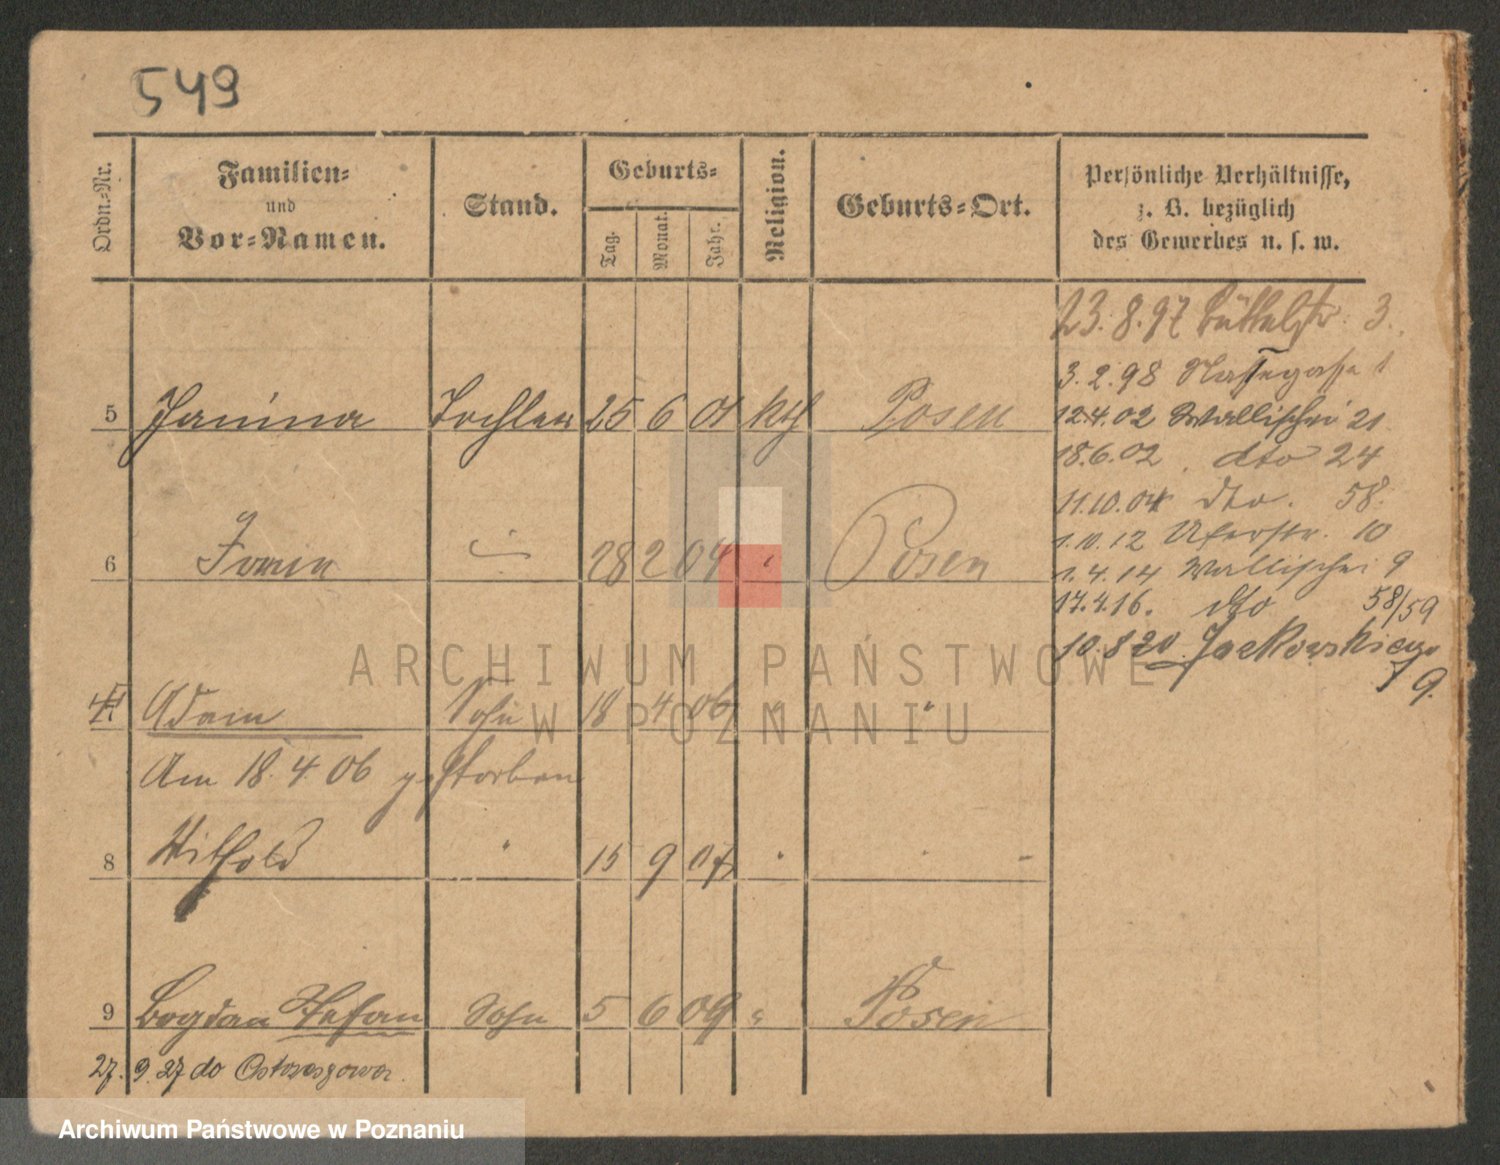 549
Ordn.-Nr.
Familien-
und
Vor-Namen.
Stand.
Geburts-
Tag.
Monat.
Jahr.
Religion.
Geburts-Ort.
Persönliche Verhältnisse,
z. B. bezüglich
des Gewerbes u. s. w.
23.8.97 Büttelstr. 3.
3.2.98
12.4.02 Wallischei 21
18.6.02. dto 24
11.10.04 dto. 58.
1.10.12 Uferstr. 10
1.4.14 Wallischei 9
17.4.16. dto 58/59
10.8.20. Jackowskiego
9.
5 Janina Tochter 25 6 01 kth Posen
6 28 2 04 " Posen
Adam Sohn 18 4 06 " "
Am 18.4.06 gestorben
8 Withold " 15 9 07 " "
9 Bogdan Stefan Sohn 5 6 09 " Posen
27. 9. 27 do
ARCHIWUM PAŃSTWOWE
W POZNANIU
Archiwum Państwowe w Poznaniu